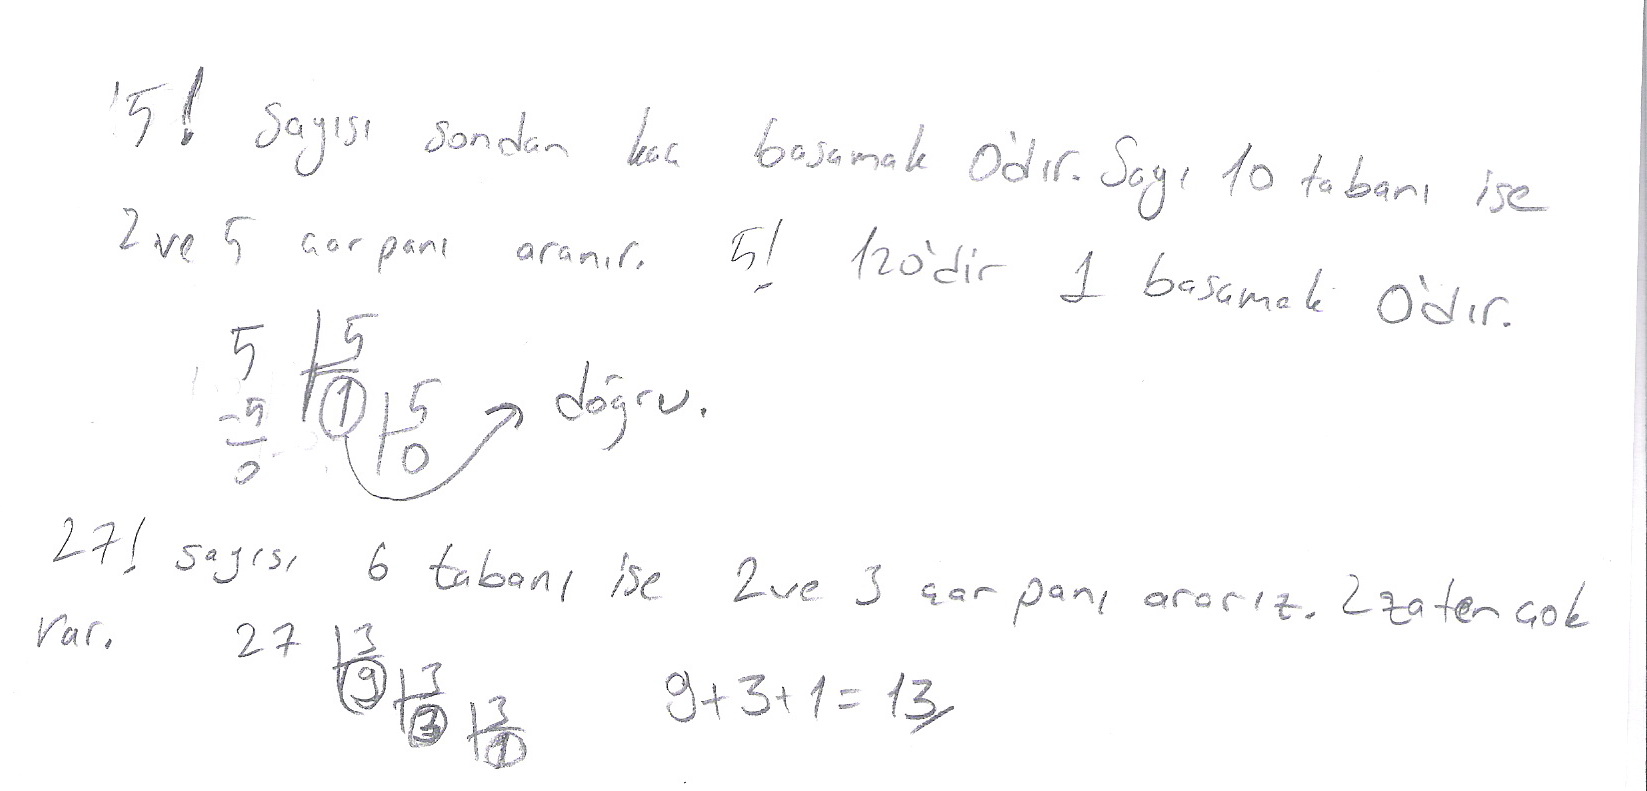 5! sayısı sondan kaç basamak 0'dır. Sayı 10 tabanı ise
2 ve 5 çarpanı aranır. 5! 120'dir 1 basamak 0'dır.
5 5
-5 1 5 doğru.
0 0
27! sayısı 6 tabanı ise 2 ve 3 çarpanı ararız. 2 zaten çok
var. 27 3
9 3 9+3+1=13
3 3
1